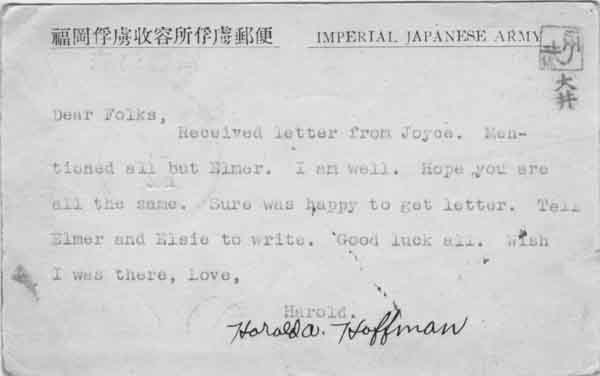 福岡俘虜收容所俘虜郵便 IMPERIAL JAPANESE ARMY
大井
Dear Folks,
Received letter from Joyce. Men-
tioned all but Elmer. I am well. Hope you are
all the same. Sure was happy to get letter. Tell
Elmer and Elsie to write. Good luck all. Wish
I was there, Love,
Harold.
Harold A. Hoffman